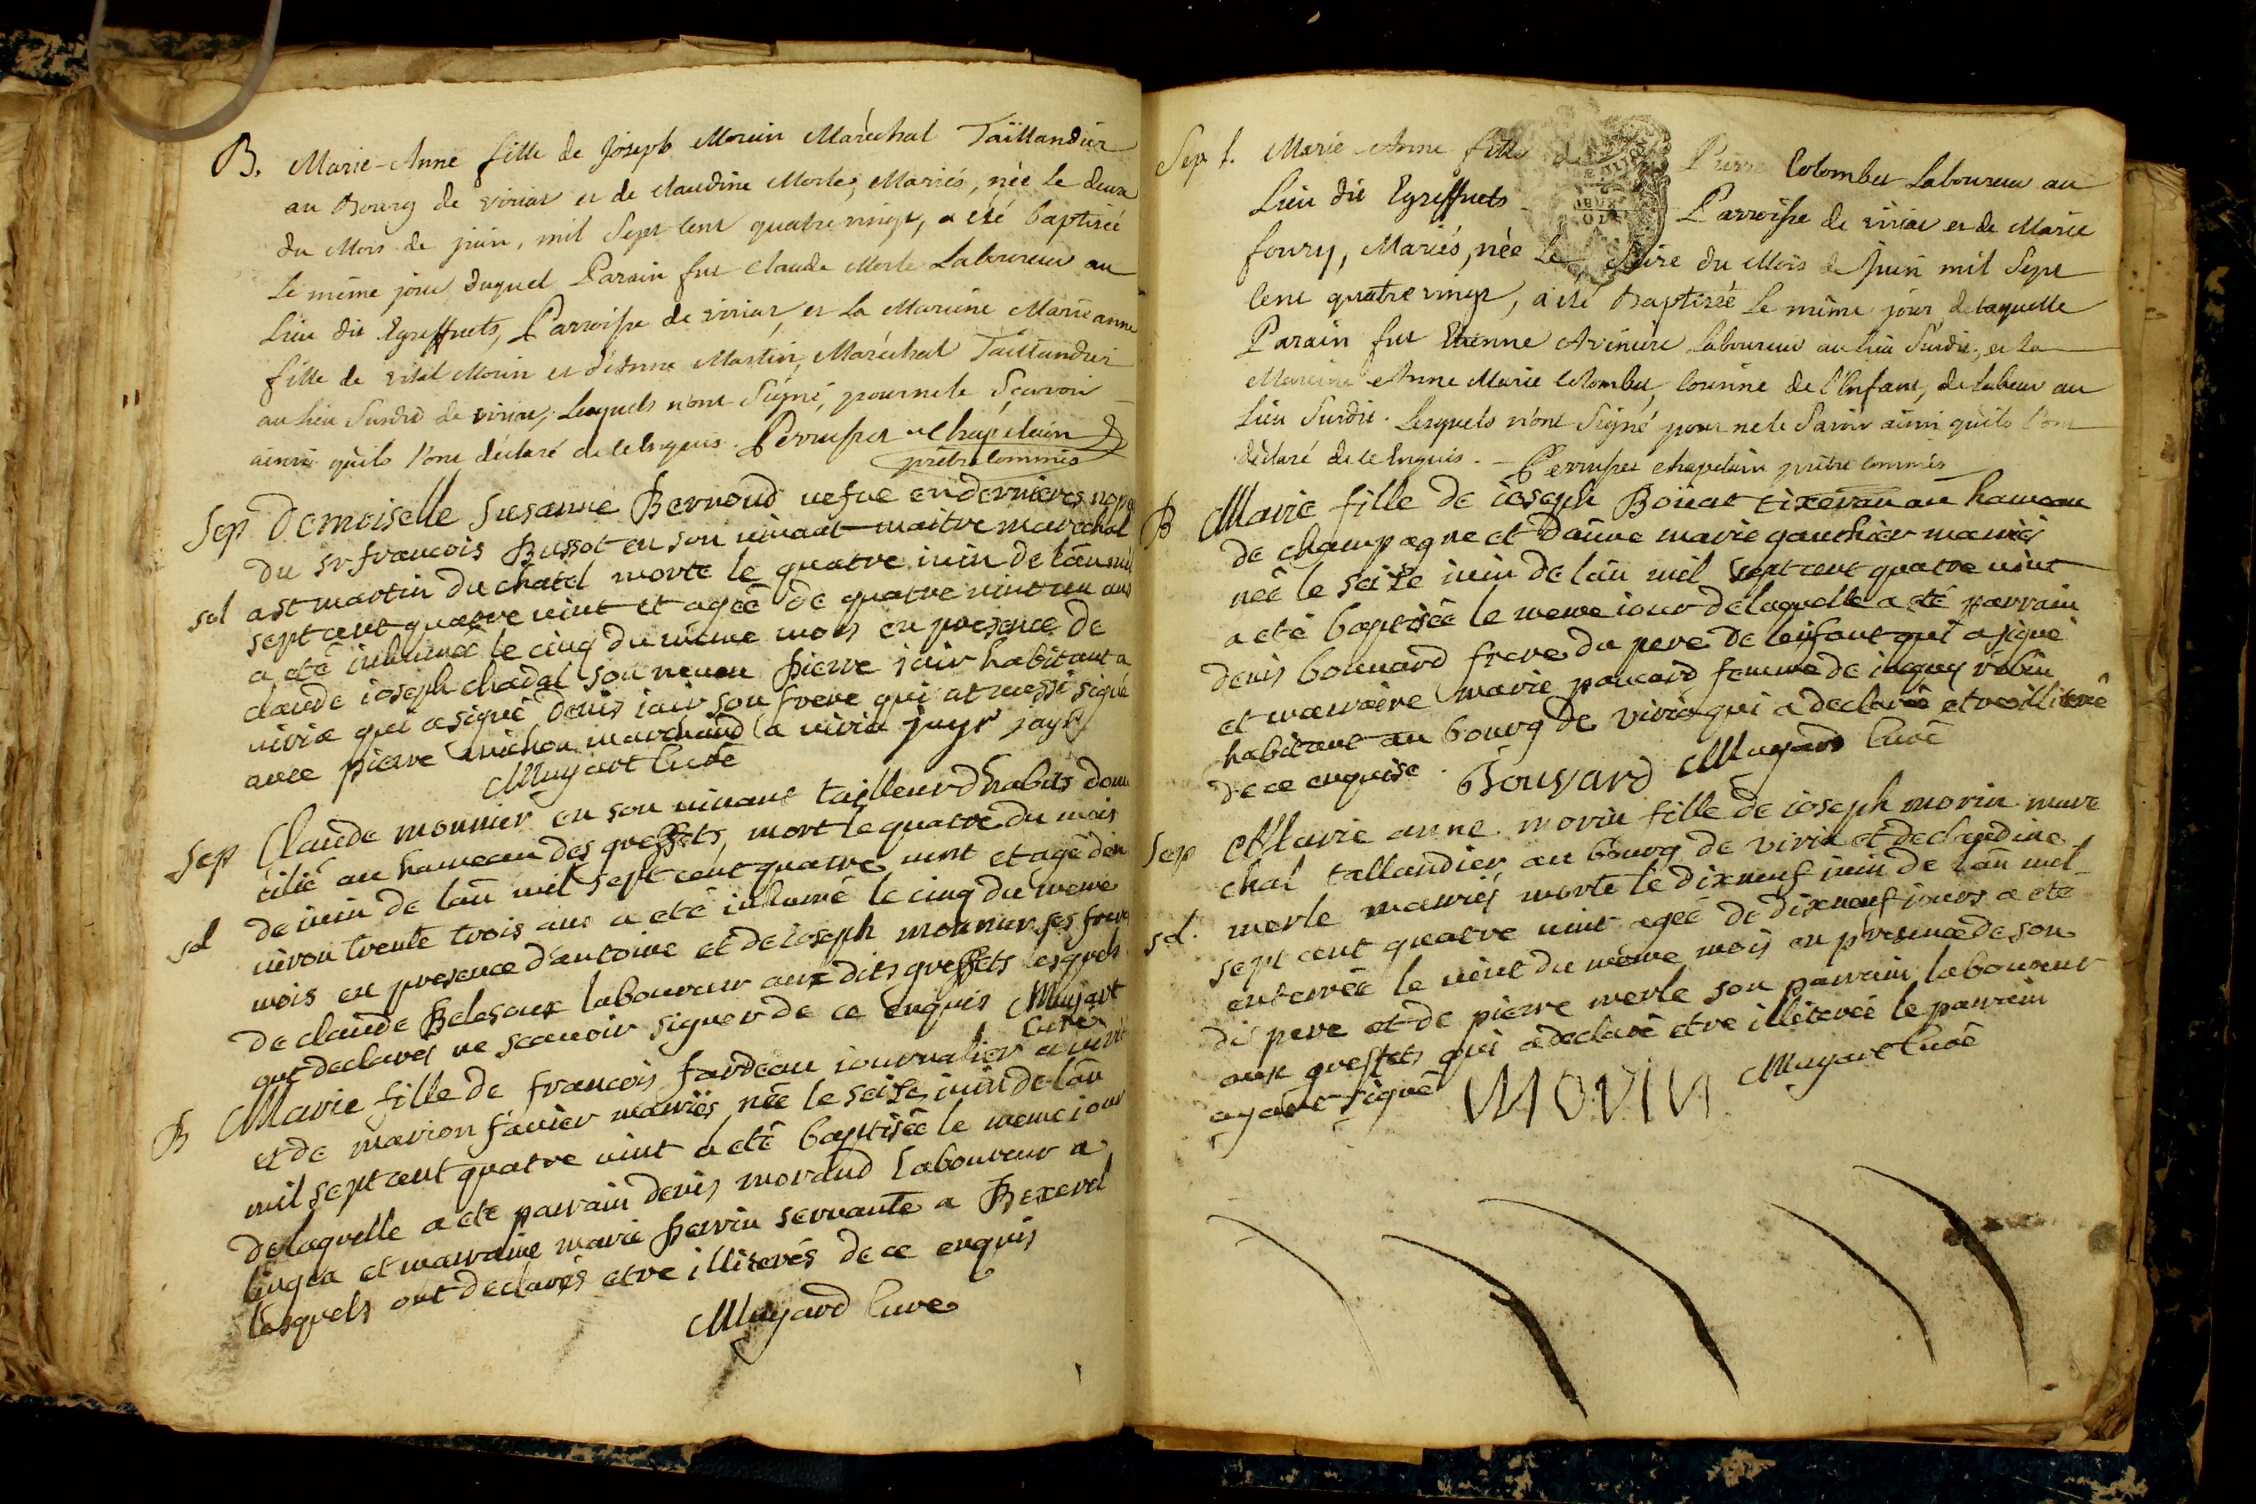 B. Marie-Anne fille de Joseph Morin Maréchal Taillandier
au Bourg de viriat et de claudine Merle, Mariés, née le deux
du Mois de juin, mil Sept Cent quatre vingt, a été baptisée
Le même jour, duquel Parain fut Claude Merle Laboureur au
Lieu dit Egreffets, Parroisse de viriat, et la Mareine Marie anne
fille de vital Morin et d'Anne Martin, Maréchal Taillandier
au Lieu Susdit de viriat, Lesquels n'ont Signé, pour ne le Sçavoir
ainsi qu'ils l'ont déclaré de ce Enquis. Perrusset Chapelain
prêtre Commis
Sep Demoiselle Susanne Bernoud vefue en dernieres nopces
du sr francois Bussot en son vivant maitre marechal
sol a st martin du chatel morte le quatre iuin de lan mil
sept cent quatre vint et ageé de quatre vint un ans
a eté inhumeé le cinq du meme mois en presence de
claude ioseph chadal son neveu pierre iair habitant a
viria qui a signé denis iair son frere qui at aussi signé
avec pierre michon marchand a viria jayr jayr
Muyart Curé
Sep Claude monnier en son vivant tailleur dhabits domi
cilié au hameau des greffets, mort le quatre du mois
sol de iuin de lan mil sept cent quatre vint et agé den
viron trente trois ans a eté inhumé le cinq du meme
mois en presence d'antoine et de ioseph monnier ses freres
de claude Belesour laboureur aux dits greffets lesquels
ont declarés ne scauoir signer de ce enquis Muyart
Curé
B Marie fille de francois fardeau iournalier a viria
et de marion favier mariés née le seize iuin de lan
mil sept cent quatre vint a eté baptiseé le meme iour
de laquelle a eté parrain denis morand laboureur a
lingea et marraine marie perrin servante a Bexerel
lesquels ont declarés etre illiterés de ce enquis
Muyard Curé
Sept. Marie Anne fille de Pierre Colombet Laboureur au
Lieu dit Egreffets Parroisse de viriat et de Marie
foury, Mariés, née Le du Mois de Juin mil Sept
Cent quatre vingt, a été Baptisée Le même jour, de laquelle
Parain fut Etienne Laboureur au lieu Susdit, et la
Mareine Anne Marie Colombet, Cousine de l'Enfant, de Labeur au
Lieu Susdit. Lesquels n'ont Signé pour ne le Savoir ainsi qu'ils l'ont
déclaré de ce Enquis. - Perrusset chapelain prêtre Commis
B Marie fille de ioseph Boüat tixeran au hameau
de champagne et d'anne marie gauthier mariés
née le seize iuin de lan mil sept cent quatre vint
a eté baptiseé le meme iour de laquelle a eté parrain
denis bouuard frere du pere de lenfant qui a signé
et marraine marie paucard femme de iaques robin
habitant au bourg de viria qui a declareé etre illitereé
de ce enquise. Bouvard Muyard Curé
Sep Marie anne morin fille de ioseph morin mare
chal tallandier au bourg de viria et de claudine
sol. merle mariés morte le dixneuf iuin de lan mil
sept cent quatre vint ageé de dixneuf iours a eté
enterreé le vint du meme mois en presence de son
dis pere et de pierre merle son parrain laboureur
aux greffets qui a declaré etre illitereé le parrain
ayant signé MORIN Muyart Curé